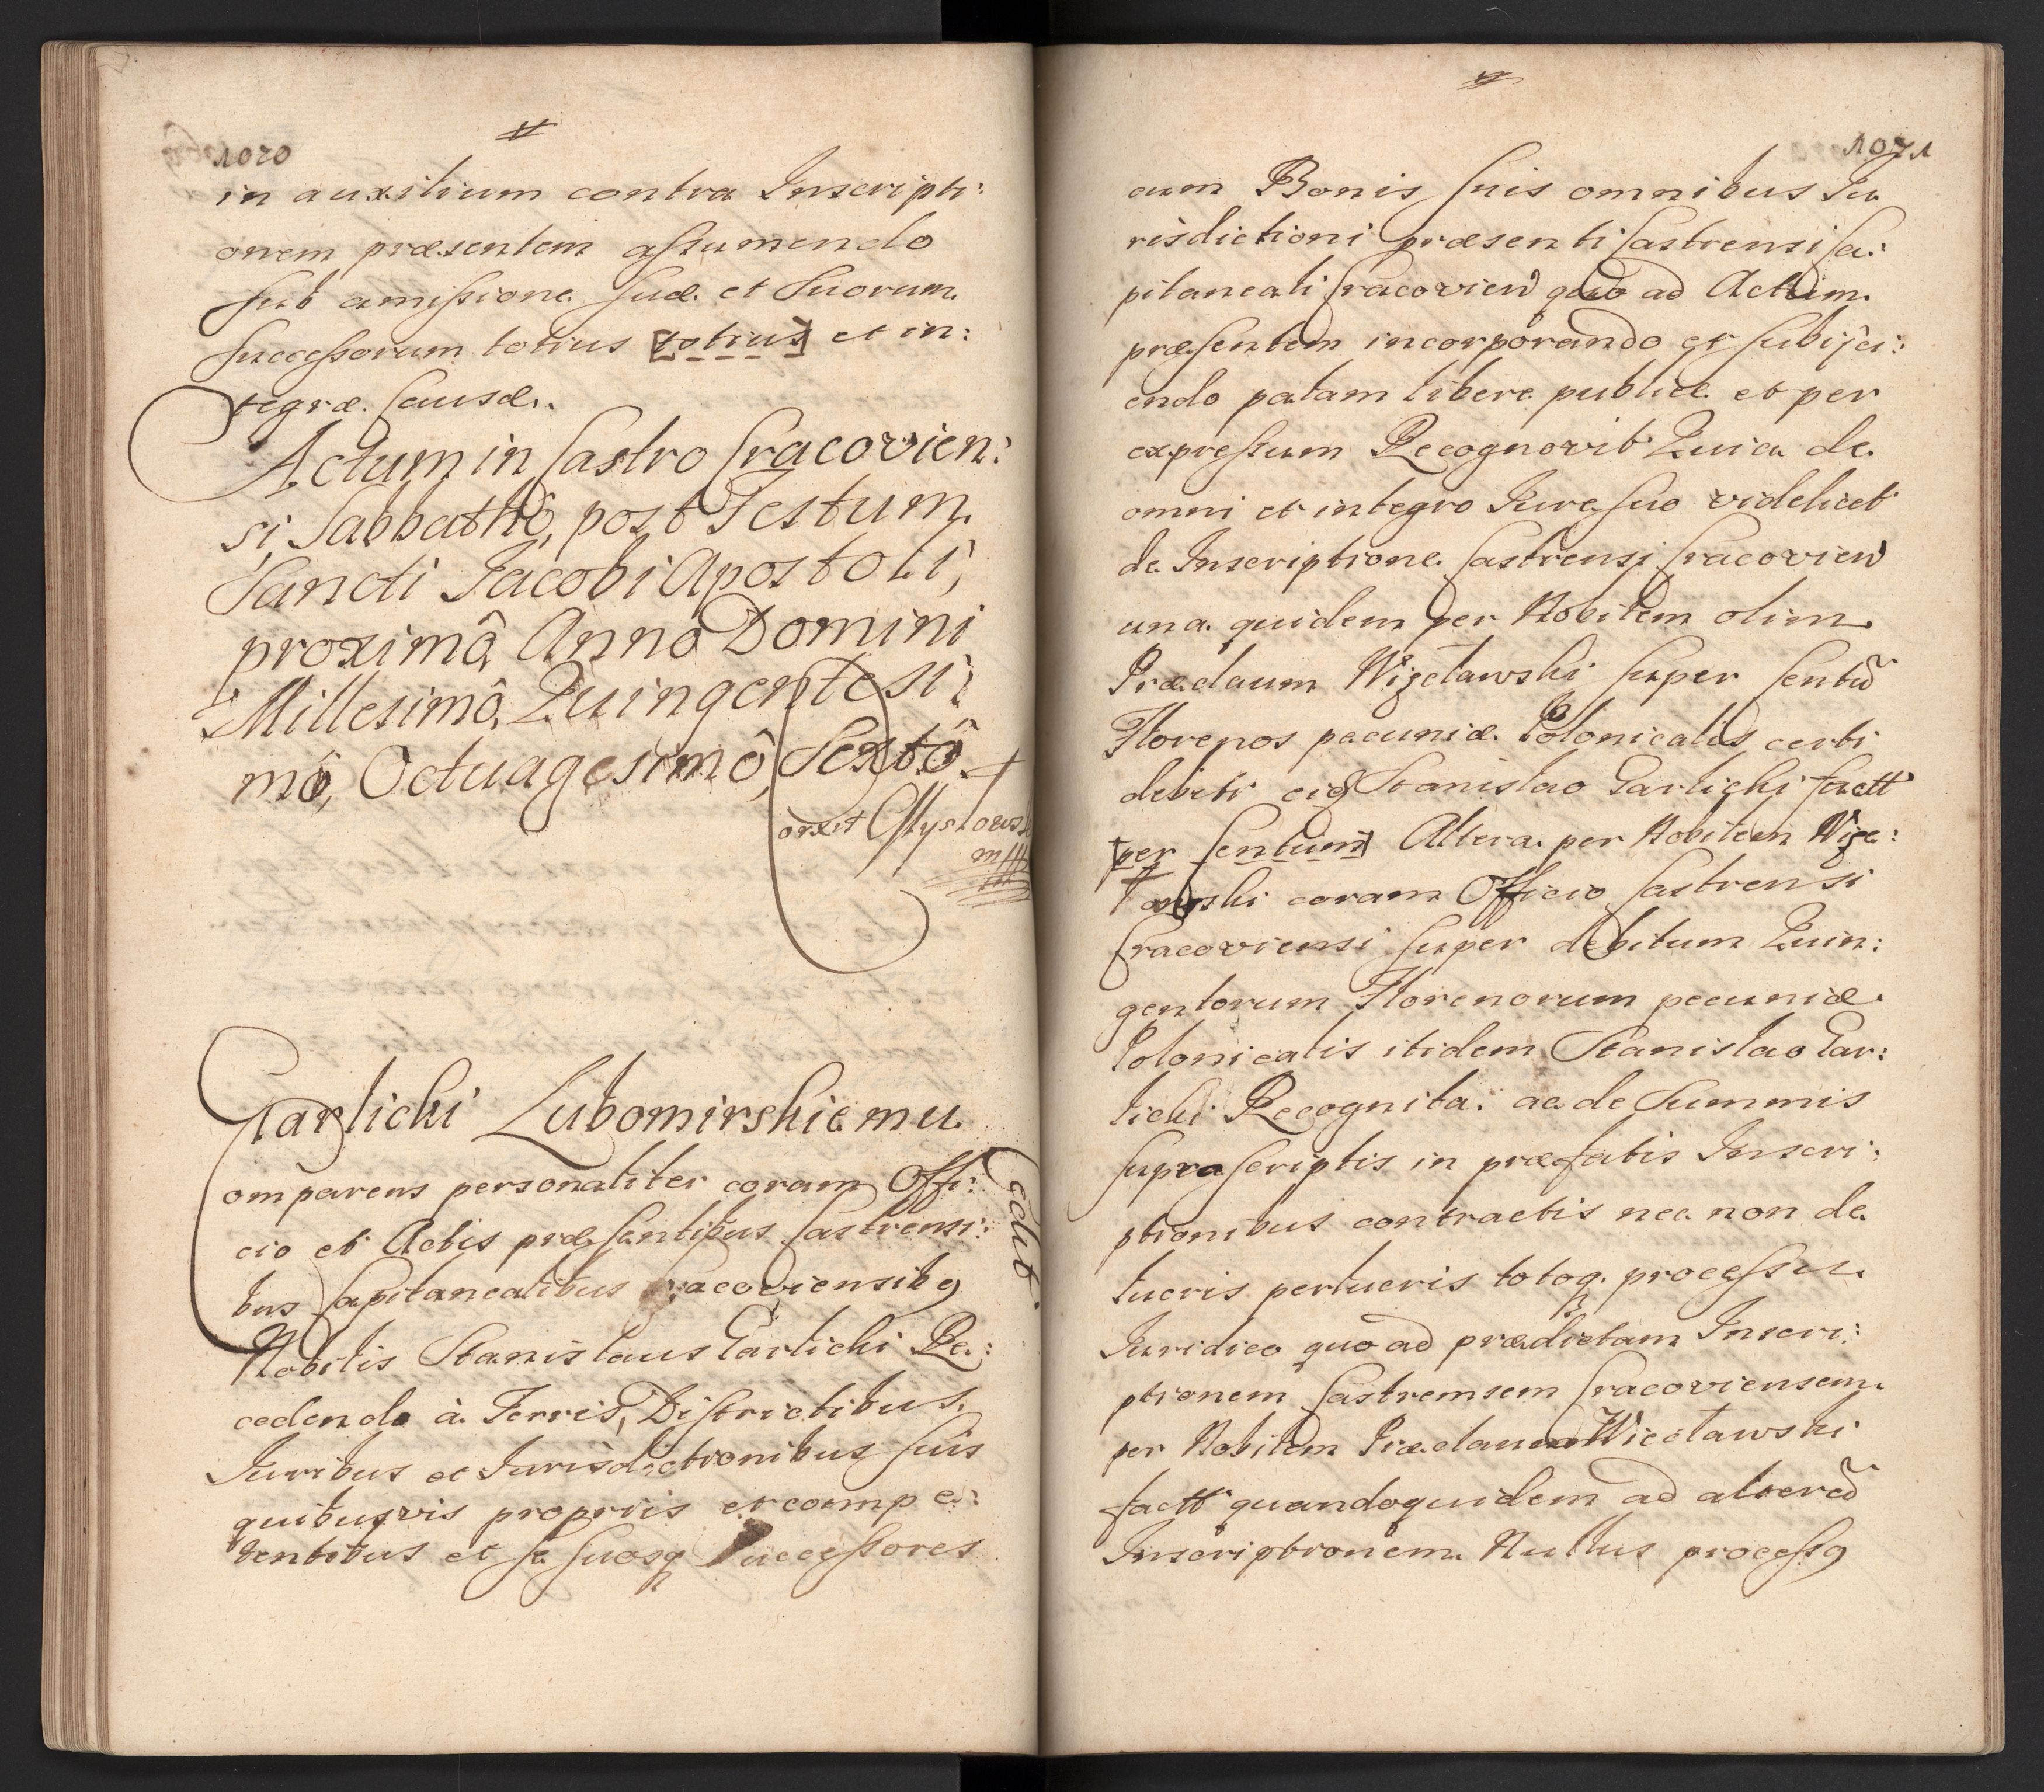 1020
in auxilium contra Inscripti:
onem præsentem assumendo
sub amissione suæ et suorum
Successorum totius [totius] et in:
tegræ Causæ.
Actum in Castro Cracovien:
si, Sabbathô, post Festum
Sancti Jacobi Apostoli,
proximô, Annô Domini
Millesimô, Quingentesi:
mô, Octuagesimô, Sextô
Garlicki Lubomirskiemu
Comparens personaliter coram Offi:
cio et Actis præsentibus Castrensi:
bus Capitanealibus Cracoviensibq
Nobilis Stanislaus Garlicki Re:
cedendo à Terris, Districtibus,
Juribus et Jurisdictionibus suis
quibusvis propriis et compe:
tentibus et se suosq Successores
cedit
1021
cum Bonis suis omnibus Ju
risdictioni præsenti Castrensi Ca:
pitaneali Cracovien quo ad Actum
præsentem incorporando et subijci:
endo palam libere publice et per
expressum Recognovit Quia de
omni et integro Jure suo videlicet
de Inscriptione Castrensi Cracovien
una quidem per Nobilem olim
Prædaum Wizeławski super Centu
Florenos pecuniæ Polonicalis certi
debiti eid Stanislao Garlicki factt
[per Centum] Altera per Nobilem Wize:
ławski coram Officio Castrensi
Cracoviensi super debitum Quin:
gentorum Florenorum pecuniæ
Polonicalis itidem Stanislao Gar:
licki Recognita: ac de Summis
suprascriptis in præfatis Inscri:
ptionibus contractis nec non de
lucris perlucris totoq. processu
Juridico quo ad prædictam Inscri:
ptionem Castremsem Cracoviensem
per Nobilem Prædaum Wiecławski
factt quandoquidem ad alteram
Inscriptionem Nullus processq